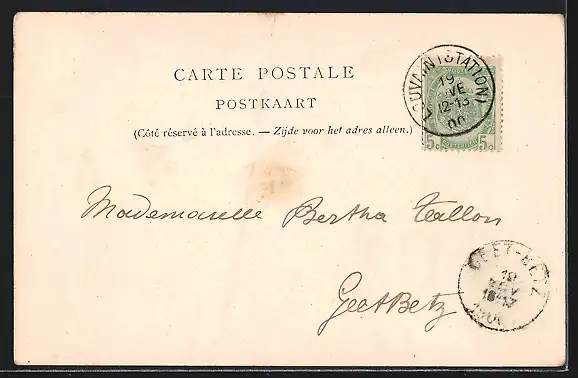 CARTE POSTALE
POSTKAART
(Côté réservé à l'adresse. — Zijde voor het adres alleen.)
LOUVAIN (STATION)
19
12-13
00
5c 5c
Mademaselle Bertha Tallon
GeetBetz
GEET-BETZ
19